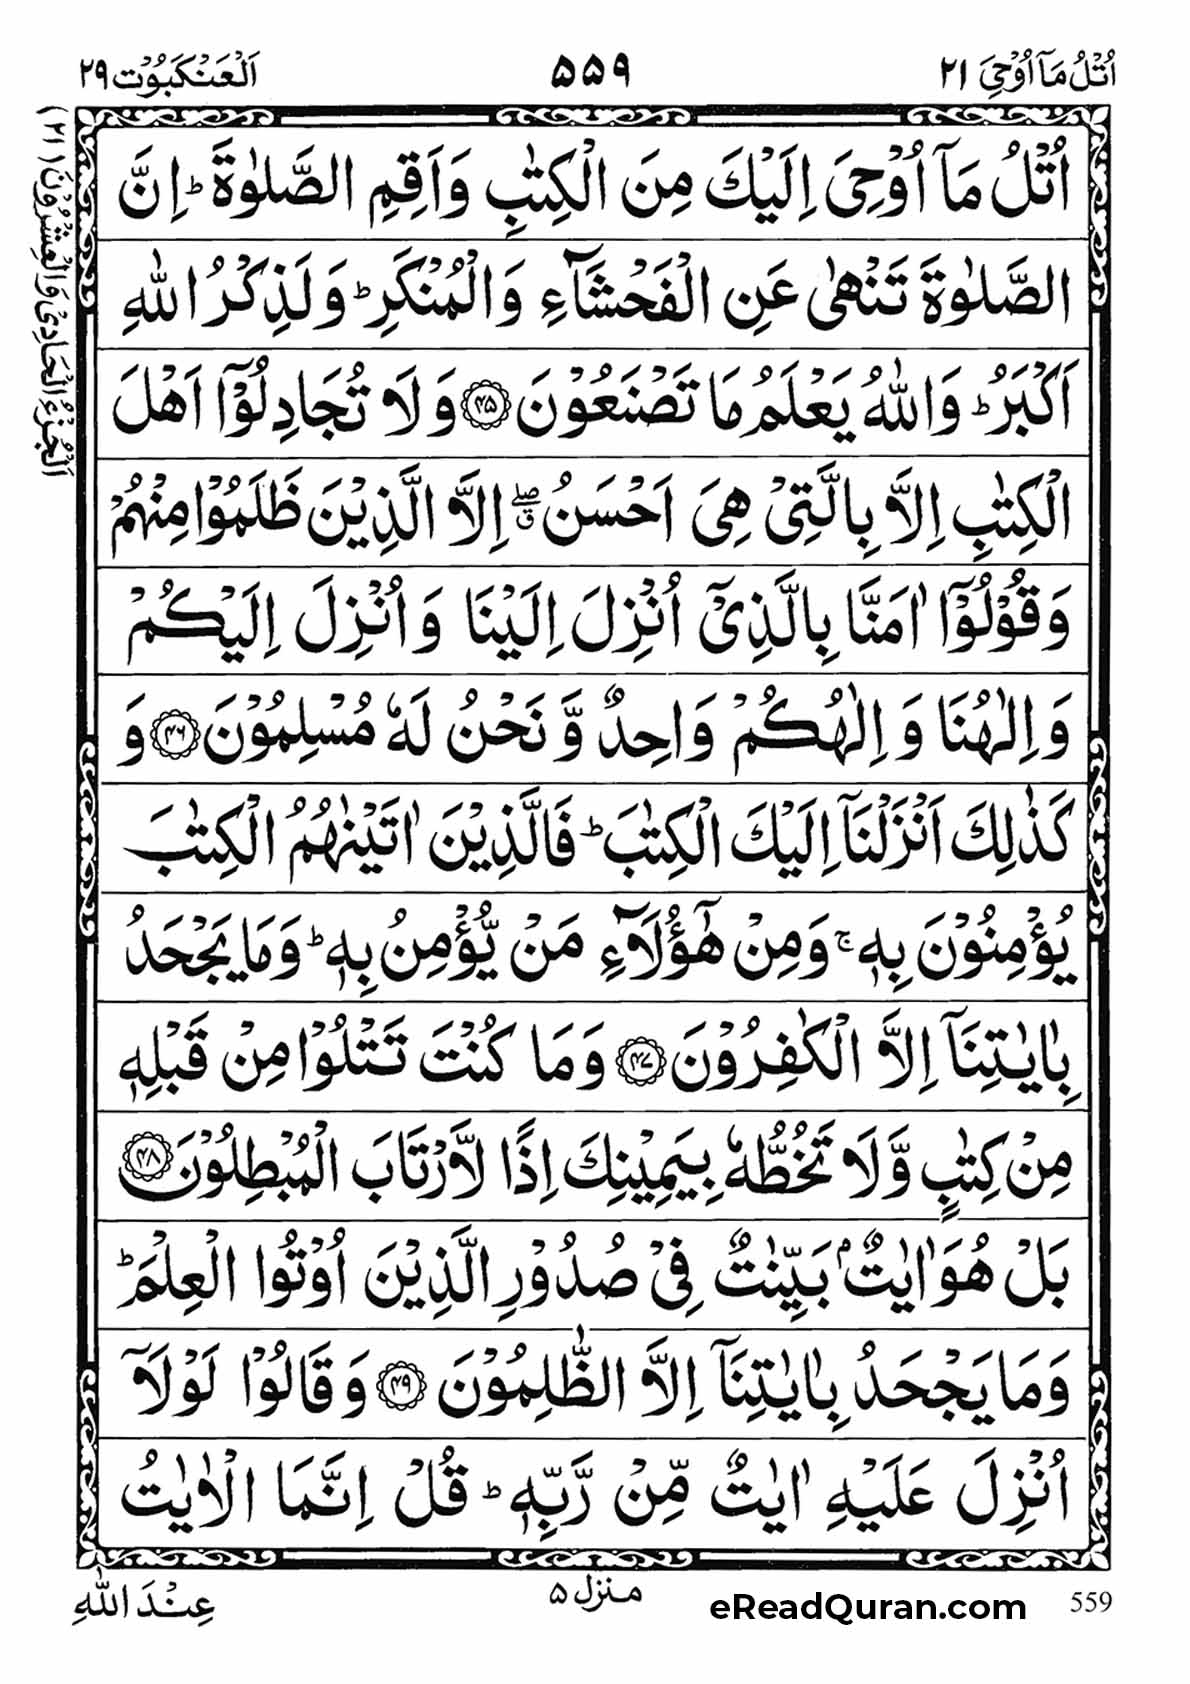 اُتْلُ مَاۤ اُوْحِیَ ٢١
٥٥٩
اَلْعَنْكَبُوْت ٢٩
اَلْجُزْءُ الْحَادِیْ وَالْعِشْرُوْنَ (٢١)
اُتْلُ مَاۤ اُوْحِیَ اِلَیْكَ مِنَ الْكِتٰبِ وَاَقِمِ الصَّلٰوةَ ؕ اِنَّ
الصَّلٰوةَ تَنْهٰی عَنِ الْفَحْشَآءِ وَالْمُنْكَرِ ؕ وَلَذِكْرُ اللّٰهِ
اَكْبَرُ ؕ وَاللّٰهُ یَعْلَمُ مَا تَصْنَعُوْنَ ﴿٤٥﴾ وَلَا تُجَادِلُوْۤا اَهْلَ
الْكِتٰبِ اِلَّا بِالَّتِیْ هِیَ اَحْسَنُ ۖۗ اِلَّا الَّذِیْنَ ظَلَمُوْا مِنْهُمْ
وَقُوْلُوْۤا اٰمَنَّا بِالَّذِیْۤ اُنْزِلَ اِلَیْنَا وَاُنْزِلَ اِلَیْكُمْ
وَاِلٰهُنَا وَاِلٰهُكُمْ وَاحِدٌ وَّنَحْنُ لَهٗ مُسْلِمُوْنَ ﴿٤٦﴾ وَ
كَذٰلِكَ اَنْزَلْنَاۤ اِلَیْكَ الْكِتٰبَ ؕ فَالَّذِیْنَ اٰتَیْنٰهُمُ الْكِتٰبَ
یُؤْمِنُوْنَ بِهٖ ۚ وَمِنْ هٰۤؤُلَآءِ مَنْ یُّؤْمِنُ بِهٖ ؕ وَمَا یَجْحَدُ
بِاٰیٰتِنَاۤ اِلَّا الْكٰفِرُوْنَ ﴿٤٧﴾ وَمَا كُنْتَ تَتْلُوْا مِنْ قَبْلِهٖ
مِنْ كِتٰبٍ وَّلَا تَخُطُّهٗ بِیَمِیْنِكَ اِذًا لَّارْتَابَ الْمُبْطِلُوْنَ ﴿٤٨﴾
بَلْ هُوَ اٰیٰتٌۢ بَیِّنٰتٌ فِیْ صُدُوْرِ الَّذِیْنَ اُوْتُوا الْعِلْمَ ؕ
وَمَا یَجْحَدُ بِاٰیٰتِنَاۤ اِلَّا الظّٰلِمُوْنَ ﴿٤٩﴾ وَقَالُوْا لَوْلَاۤ
اُنْزِلَ عَلَیْهِ اٰیٰتٌ مِّنْ رَّبِّهٖ ؕ قُلْ اِنَّمَا الْاٰیٰتُ
عِنْدَ اللّٰهِ
منزل ٥
eReadQuran.com
559